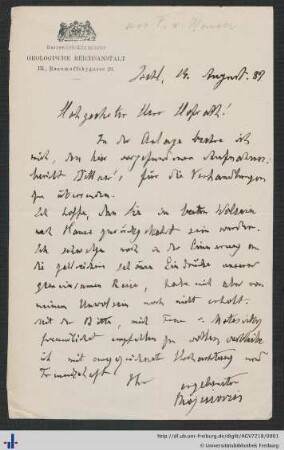 Universität-
GEOLOGISCHE REICHSANSTALT
III., Rasumoffskygasse 23.
Ischl, 19. August 89
Hochgeehrter Herr Hofrath!
In der Anlage beehre ich
mich, den hier vorgefundenen Aufnahms-
bericht Bittner's, für die Verhandlungen
zu übersenden.
Ich hoffe, dass Sie im besten Wohlsein
nach Hause zurückgekehrt sein werden.
Ich schwelge noch in der Erinnerung an
die zahlreichen schönen Eindrücke unserer
gemeinsamen Reise, habe mich aber von
meinem Unwohlsein noch nicht erholt.
Mit der Bitte, mich Frau
freundlichst empfehlen zu wollen, verbleibe
ich mit ausgezeichneter Hochachtung und
Freundschaft Ihr
ergebenster
Mojsisovics
http://dl.ub.uni-freiburg.de/diglit/ACV7218/0001
© Universitätsbibliothek Freiburg